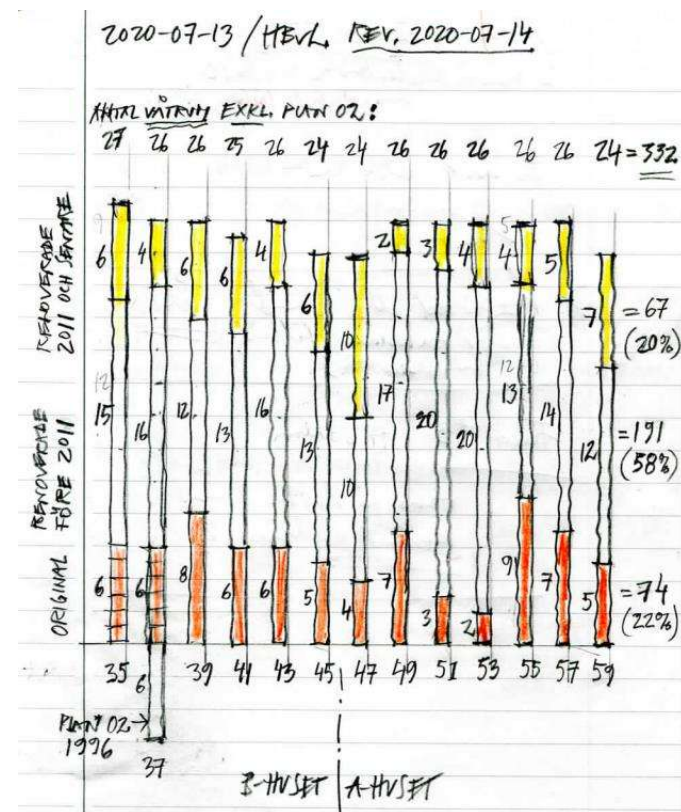 2020-07-13 / HEVL. REV. 2020-07-14
ANTAL VÅTRUM EXKL. PLAN 02:
27 26 26 25 26 24 24 26 26 26 26 26 24 = 332
RENOVERADE
2011 OCH SENARE
6 4 6 6 4 6 10 2 3 4 4 5 7 = 67
(20%)
RENOVERADE
FÖRE 2011
12
12
15 16 12 13 16 13 10 17 20 20 13 14 12 = 191
(58%)
ORIGINAL
6 6 8 6 6 5 4 7 3 2 9 7 5 = 74
(22%)
35 39 41 43 45 47 49 51 53 55 57 59
6
PLAN 02→
1996
37
B-HUSET A-HUSET